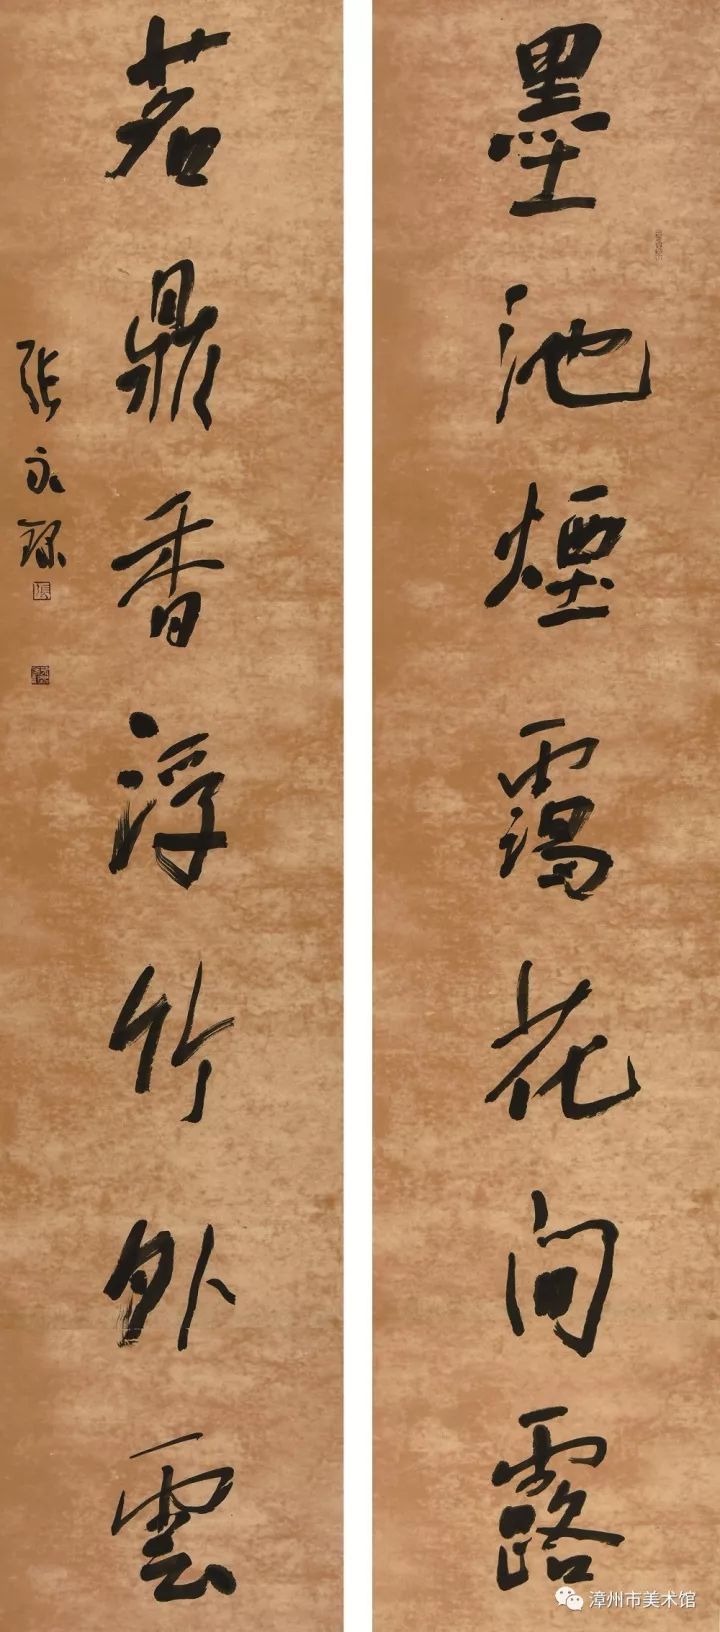 墨池煙靄花间露
茗鼎香浮竹外雲
张永
漳州市美术馆